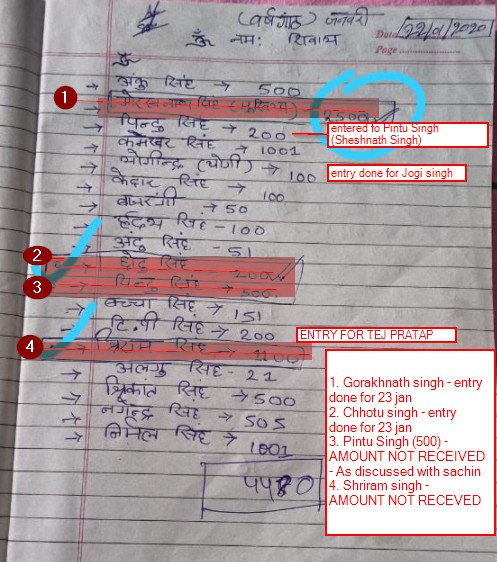 (वर्षगाठ) जनवरी
Date 22/01/2020
ॐ नमः शिवाय
Page
ॐ
→ अंकु सिंह → 500
1 → गोरखनाथ सिंह (मुखिया) 2500
→ पिन्टु सिंह → 200
entered fo Pintu Singh
(Sheshnath Singh)
→ कमेश्वर सिंह → 1001
→ योगिन्द्र (योगी) → 100
entry done for Jogi singh
→ केदार सिंह → 100
→ बजरंगी → 50
→ हृदय सिंह - 100
→ अंदु सिंह - 51
2 → छोटु सिंह - 200
3 → पिन्टु सिंह → 500
→ बच्चा सिंह → 151
→ टि.पी सिंह → 200
ENTRY FOR TEJ PRATAP
4 → श्रिराम सिंह → 1100
→ अलगु सिंह - 21
→ श्रिकांत सिंह → 500
→ नगेन्द्र सिंह → 505
→ निर्मल सिंह → 1001
4480
1. Gorakhnath singh - entry
done for 23 jan
2. Chhotu singh - entry
done for 23 jan
3. Pintu Singh (500) -
AMOUNT NOT RECEIVED
- As discussed with sachin
4. Shriram singh -
AMOUNT NOT RECEVED